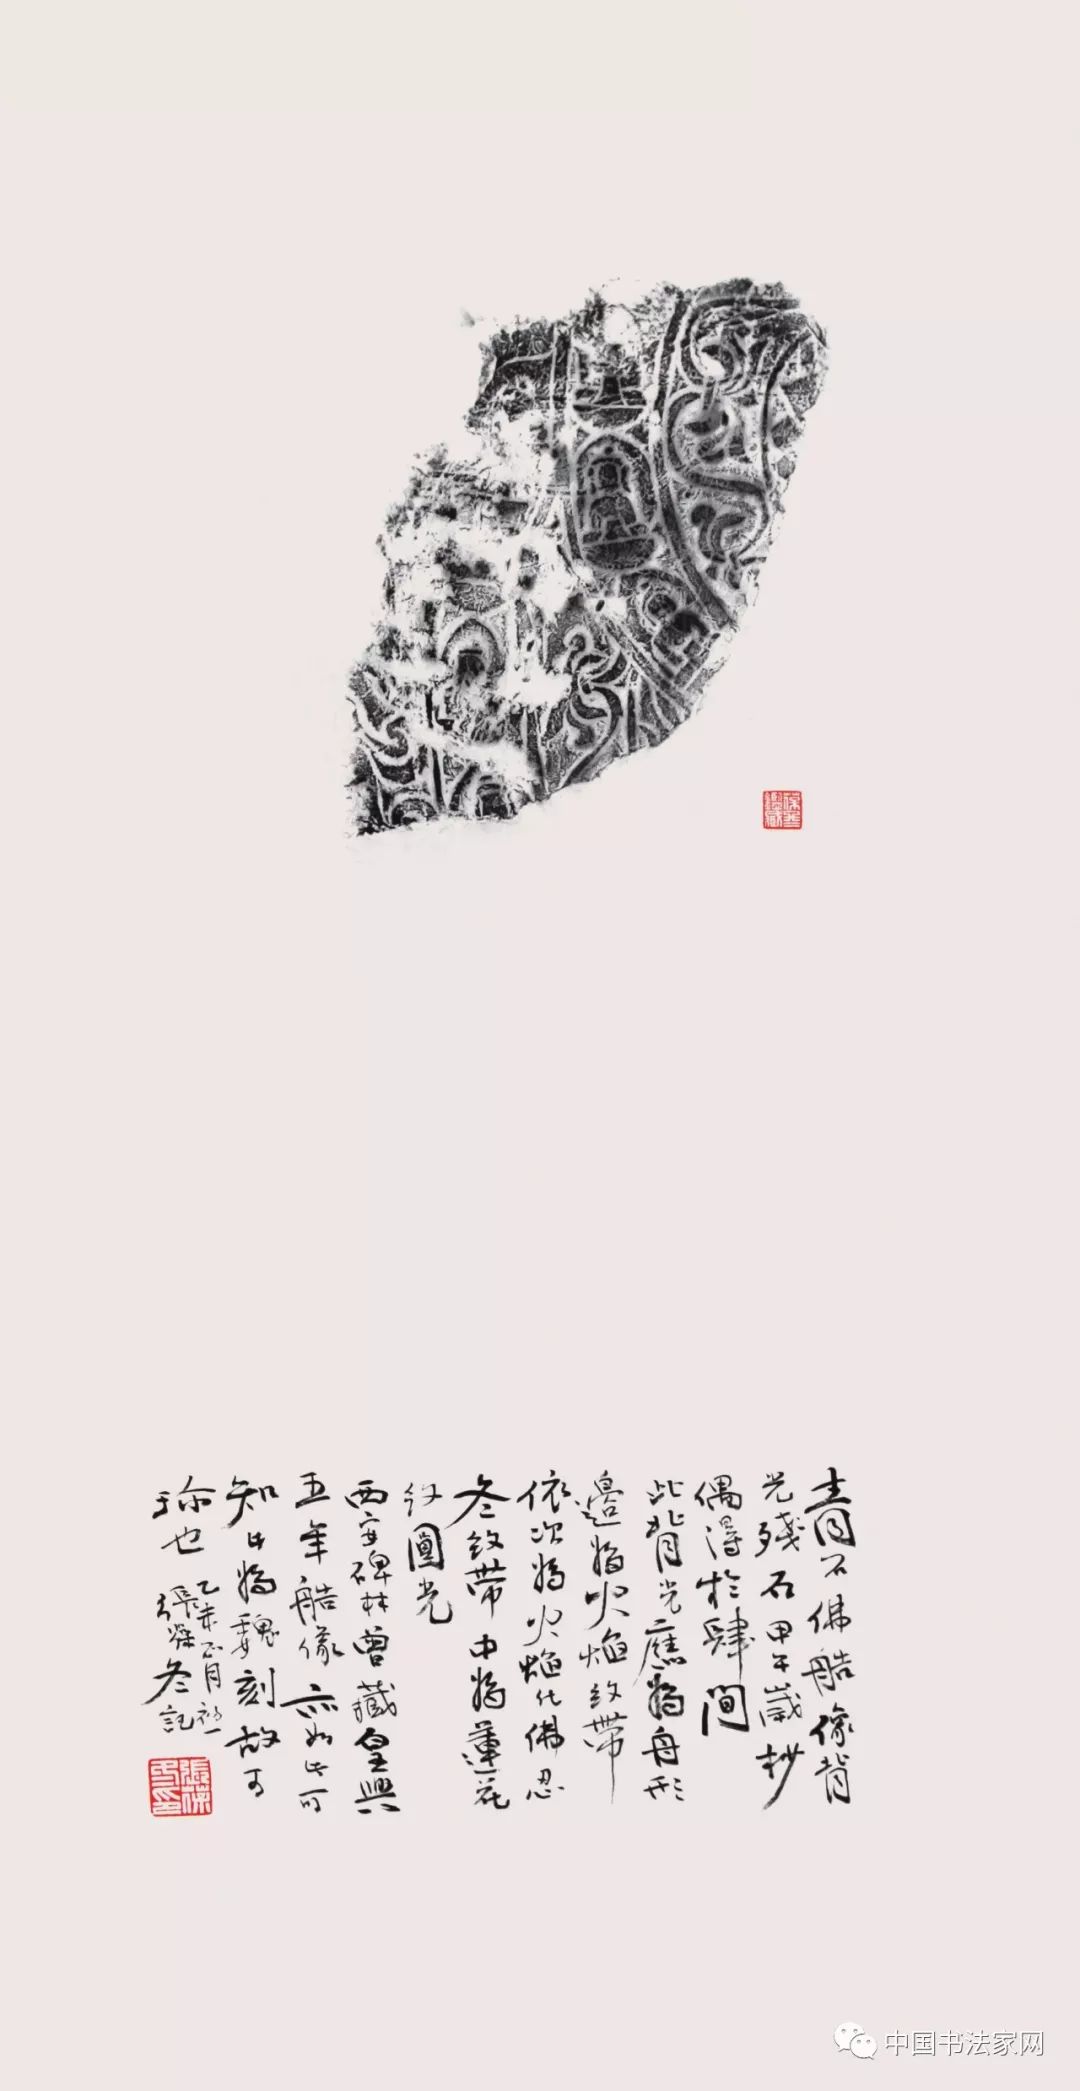 青石佛艁像背
光殘石甲午歲杪
偶得於肆間
此背光應為舟形
邊為火焰紋帶
依次為火焰化佛忍
冬紋帶中為蓮花
紋圓光
西安碑林曾藏皇興
五年艁像亦如此可
知此為魏刻故可
珎也
乙未正月初一
張葆冬記
中国书法家网